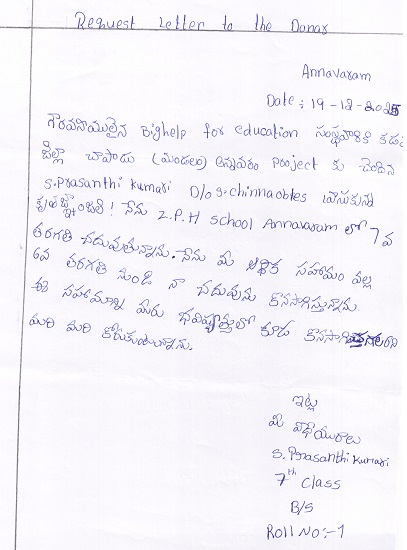 Request Letter to the Donar
Annavaram
Date : 19-12-2025
గౌరవనీయులైన Bighelp for education సంస్థవారికి కడప
జిల్లా చాపాడు (మండలం) అన్నవరం project కు చెందిన
S.Prasanthi kumari D/o S.chinna obles వ్రాసుకున్న
కృతజ్ఞతాంజలి! నేను Z.P.H school Annavaram లో 7 వ
తరగతి చదువుతున్నాను. నేను మీ ఆర్థిక సహాయం వల్ల
6వ తరగతి నుండి నా చదువును కొనసాగిస్తున్నాను
ఈ సహాయాన్ని మీరు భవిష్యత్తులో కూడ
మరి మరి కోరుకుంటున్నాను.
ఇట్లు
మీ విధేయురాలు
S. Prasanthi Kumari
7th class
B/S
Roll No:-1